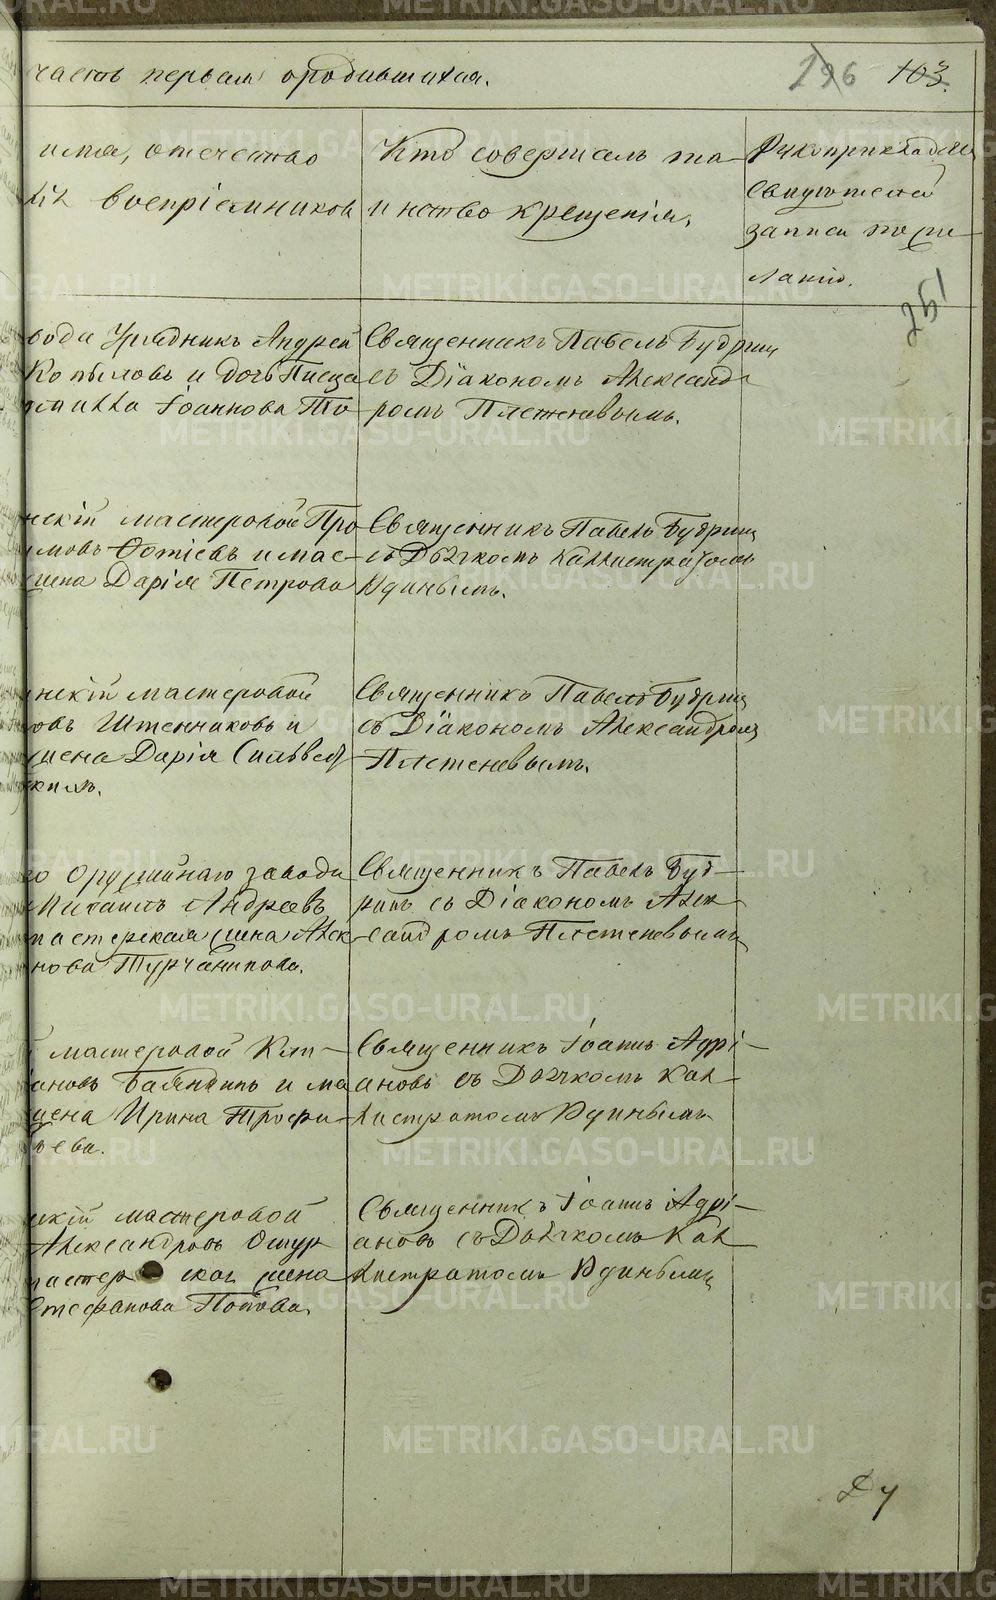 часть первая о родившихся.
196 103.
имя, отечество
воспріемниковъ
Кто совершалъ та-
инство крещенія.
Рукоприкладство
свидѣтелей
записи по же-
ланію.
251
вода Урядникъ Андрей
Копыловъ и дочь Писца
Іоаннова То
Священникъ Павелъ Будринъ
съ Діакономъ Александ-
ромъ Плетеневымъ.
нскій мастеровой Про
имовъ Фотіевъ и мас-
жена Дарія Петрова
Священникъ Павелъ Будринъ
съ Дьячкомъ Каллистратомъ
Удинымъ.
нскій мастеровой
овъ Штенниковъ и
жена Дарія Сильвест
Священникъ Павелъ Будринъ
съ Діакономъ Александромъ
Плетеневымъ.
го оружейнаго завода
Михаилъ Андреевъ
мастерская жена Алек
нова Турчанинова.
Священникъ Павелъ Буд-
ринъ съ Діакономъ Алек
сандромъ Плетеневымъ
й мастеровой Кли-
ановъ Баяндинъ и ма
жена Ирина Трофи-
ьева.
Священникъ Іоаннъ Адрі-
ановъ съ Дьячкомъ Кал-
листратомъ Удинымъ
нскій мастеровой
Александровъ
мастерская жена
Стефанова Попова.
Священникъ Іоаннъ Адрі-
ановъ съ Дьячкомъ Кал
листратомъ Удинымъ
METRIKI.GASO-URAL.RU